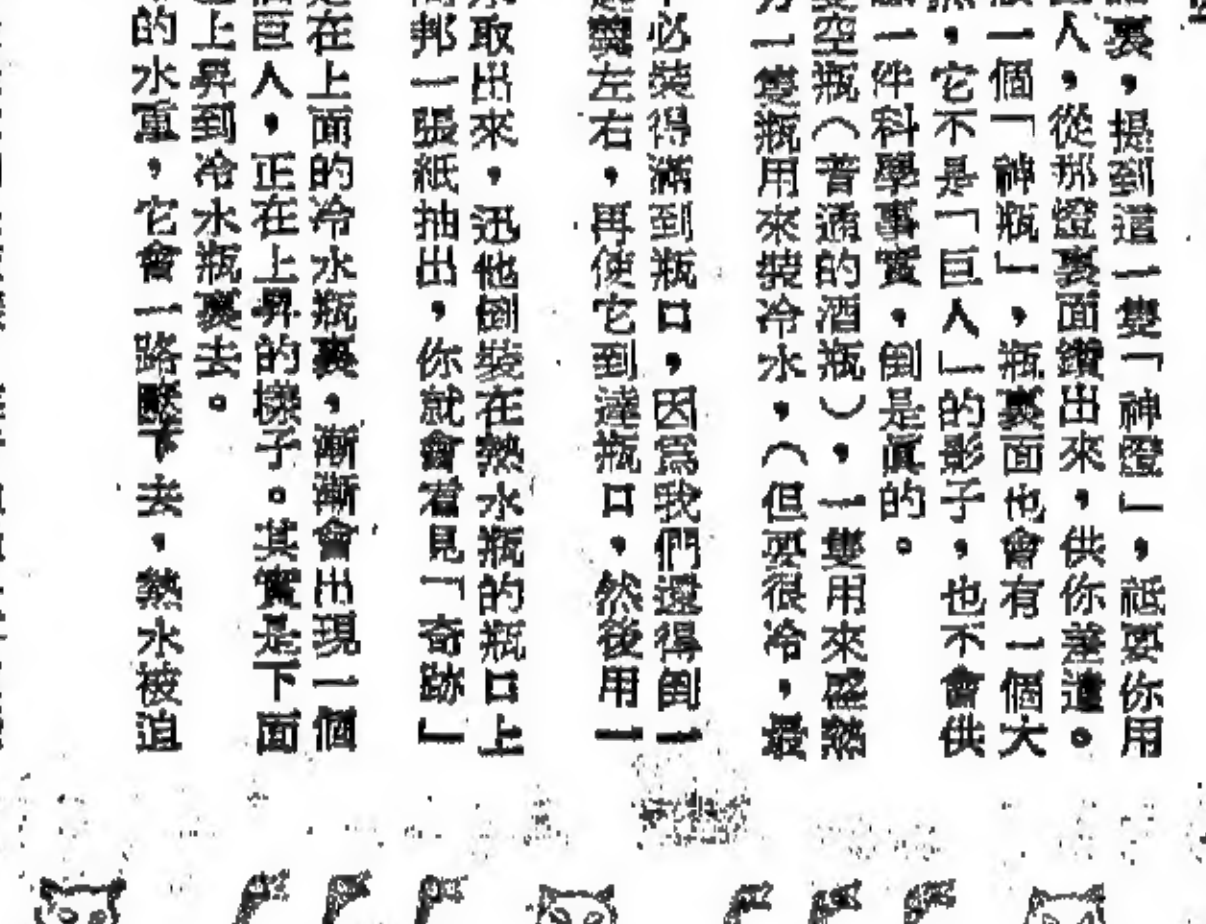 裏，提到這一雙「神燈」，祗要你用
人，從那燈裏面鑽出來，供你差遣。
一個「神瓶」，瓶裏面也會有一個大
，它不是「巨人」的影子，也不會供
一件科學事實，倒是眞的。
空瓶（普通的酒瓶），一隻用來盛熱
一隻瓶用來裝冷水，（但要很冷，最
必裝得滿到瓶口，因爲我們還得倒一
左右，再使它到達瓶口，然後用一
取出來，迅他倒裝在熱水瓶的瓶口上
邦一張紙抽出，你就會看見「奇跡」
在上面的冷水瓶裏，漸漸會出現一個
巨人，正在上昇的樣子。其實是下面
上昇到冷水瓶裏去。
的水重，它會一路壓下去，熱水被迫